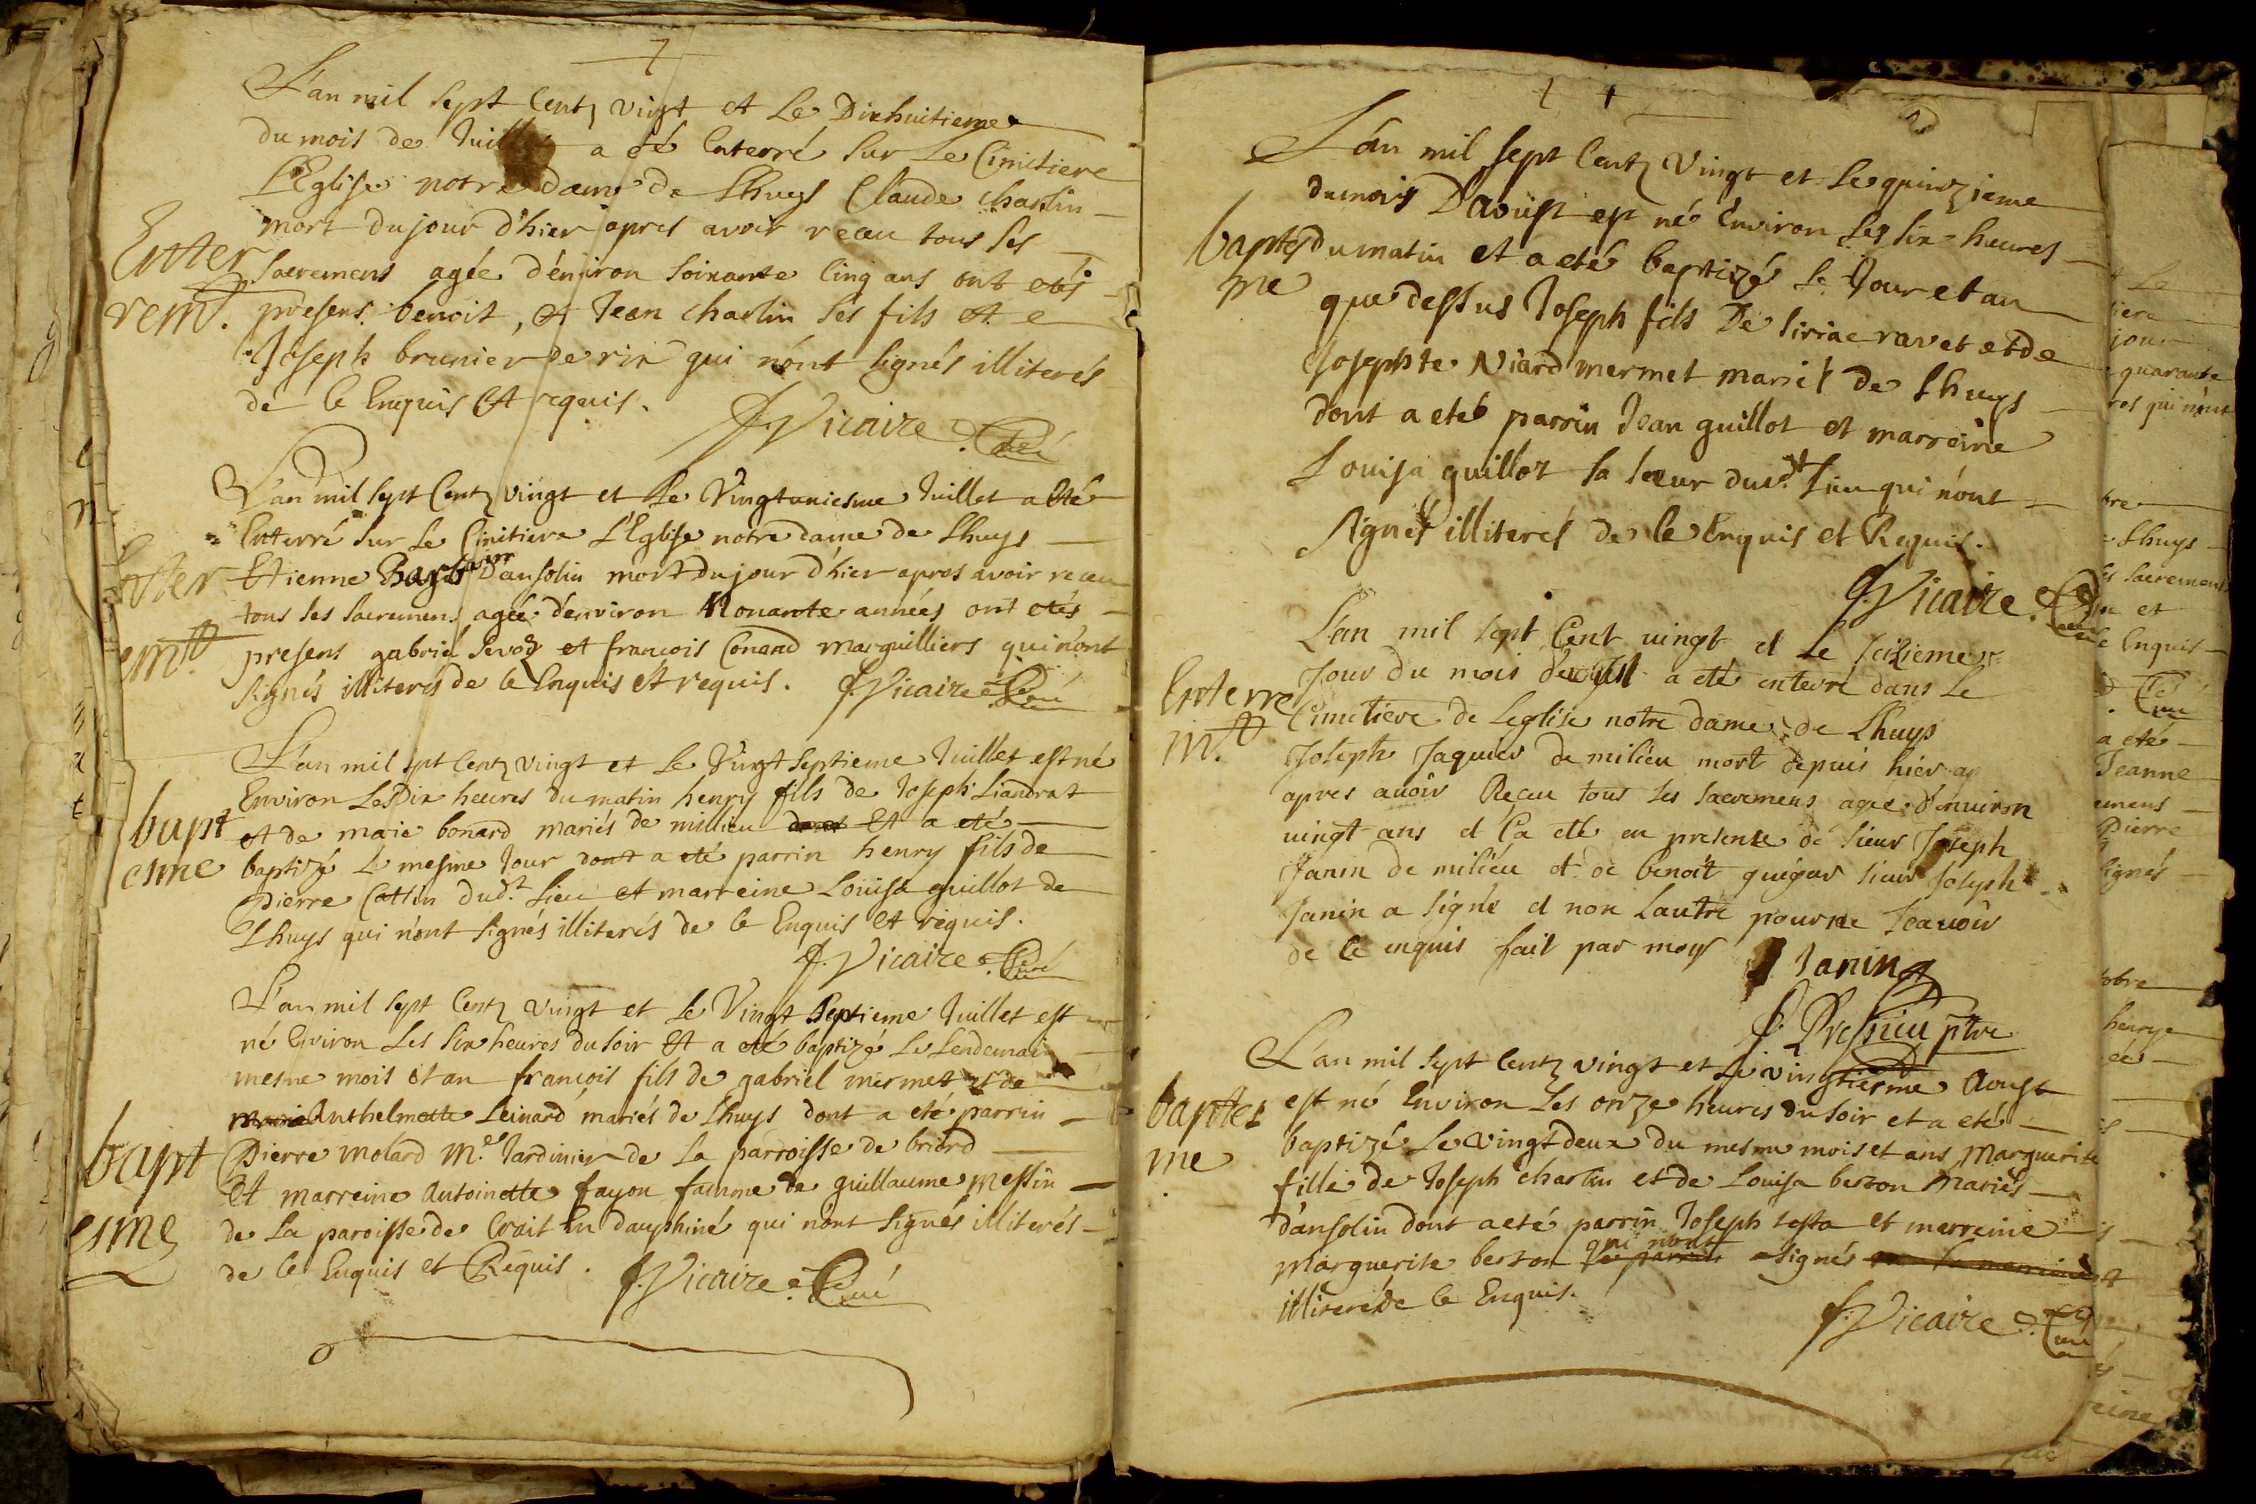 L'an mil sept Centz vingt et Le Dixhuitieme
du mois de Juillet a eté Enterré sur Le Cimitiere
L'Eglise notre dame de Lhuys Claude Charlin
mort du jour d'hier apres avoir receu tous ses
Enter
rem.t
sacremens agée d'environ soixante cinq ans ont etés
presens benoit, et Jean charlin ses fils et
Joseph brunier de rix qui n'ont signés illiterés
de ce Enquis et requis.
J. Vicaire Curé
L'an mil sept Centz vingt et Le Vingtuniesme Juillet a eté
Enterré sur Le Cimitiere L'Eglise notre dame de Lhuys
Enter
em.t
Etienne d'ansolin mort du jour d'hier apres avoir receu
tous ses sacremens agée d'environ Nonante années ont etés
presens gabriel et francois Conand marguilliers qui n'ont
signés illiterés de ce Enquis et requis. J. Vicaire Curé
L'an mil sept Centz vingt et Le Vingt septieme Juillet est né
Environ Les Dix heures du matin henry fils de Joseph Liandrat
bapt
esme
et de marie bonard mariés de millieu dont et a eté
baptizé Le mesme Jour dont a eté parrin henry fils de
Pierre Cattin dud.t Lieu et marreine Louïse guillot de
Lhuys qui n'ont signés illiterés de ce Enquis et requis.
J. Vicaire Curé
L'an mil sept Centz vingt et Le Vingt Septieme Juillet est
né Environ Les six heures du soir et a eté baptizé Le Lendemain
mesme mois et an francois fils de gabriel mermet et de
marie Anthelmette Leinard mariés de Lhuys dont a eté parrin
bapt
esme
Pierre molard M.e Jardinier de La parroisse de briord
et marreine Antoinette fayon famme de guillaume messin
de La paroisse de Crait En dauphiné qui n'ont signés illiterés
de ce Enquis et Requis. J. Vicaire Curé
L'an mil sept Centz Vingt et Le quinzieme
du mois D'aoüst est né Environ Les six heures
baptes
me
du matin et a eté baptizé Le Jour et an
que dessus Joseph fils De siriac ravet et de
Josephte Niard mermet mariés de Lhuys
dont a eté parrin Jean guillot et marreine
Louisa guillot sa sœur dud.t Lieu qui n'ont
signés illiterés de ce Enquis et Requis.
J. Vicaire Curé
L'an mil sept Cent vingt et le seizieme
Jour du mois d'aoust a eté enterré dans Le
Enterre
m.t
Cimetiere de Leglise notre dame de Lhuys
Joseph Jaquier de milieu mort depuis hier ap
apres auoir Receu tous ses sacremens agée d'enuiron
uingt ans et Ça eté en presence de sieur Joseph
Janin de milieu et de benoit sieur Joseph
Janin a signé et non Lautre pour ne sçauoir
de ce enquis fait par moy Janin
J. Pressieu ptre
L'an mil sept Centz vingt et Le vingtiesme Aoust
baptes
me
est né Environ Les onze heures du soir et a eté
baptizé Le vingtdeux du mesme mois et ans Marguerite
fille de Joseph charlin et de Louisa berton Mariés
d'ansolin dont a eté parrin Joseph testa et marreine
Marguerite berton qui n'ont signés
illiterés de ce Enquis.
J. Vicaire Curé
Le
tiere
jour
quarante
res qui n'ont
bre
Lhuys
sacremens
et
Enquis
Curé
a eté
Jeanne
emens
Pierre
signés
obre
henrye